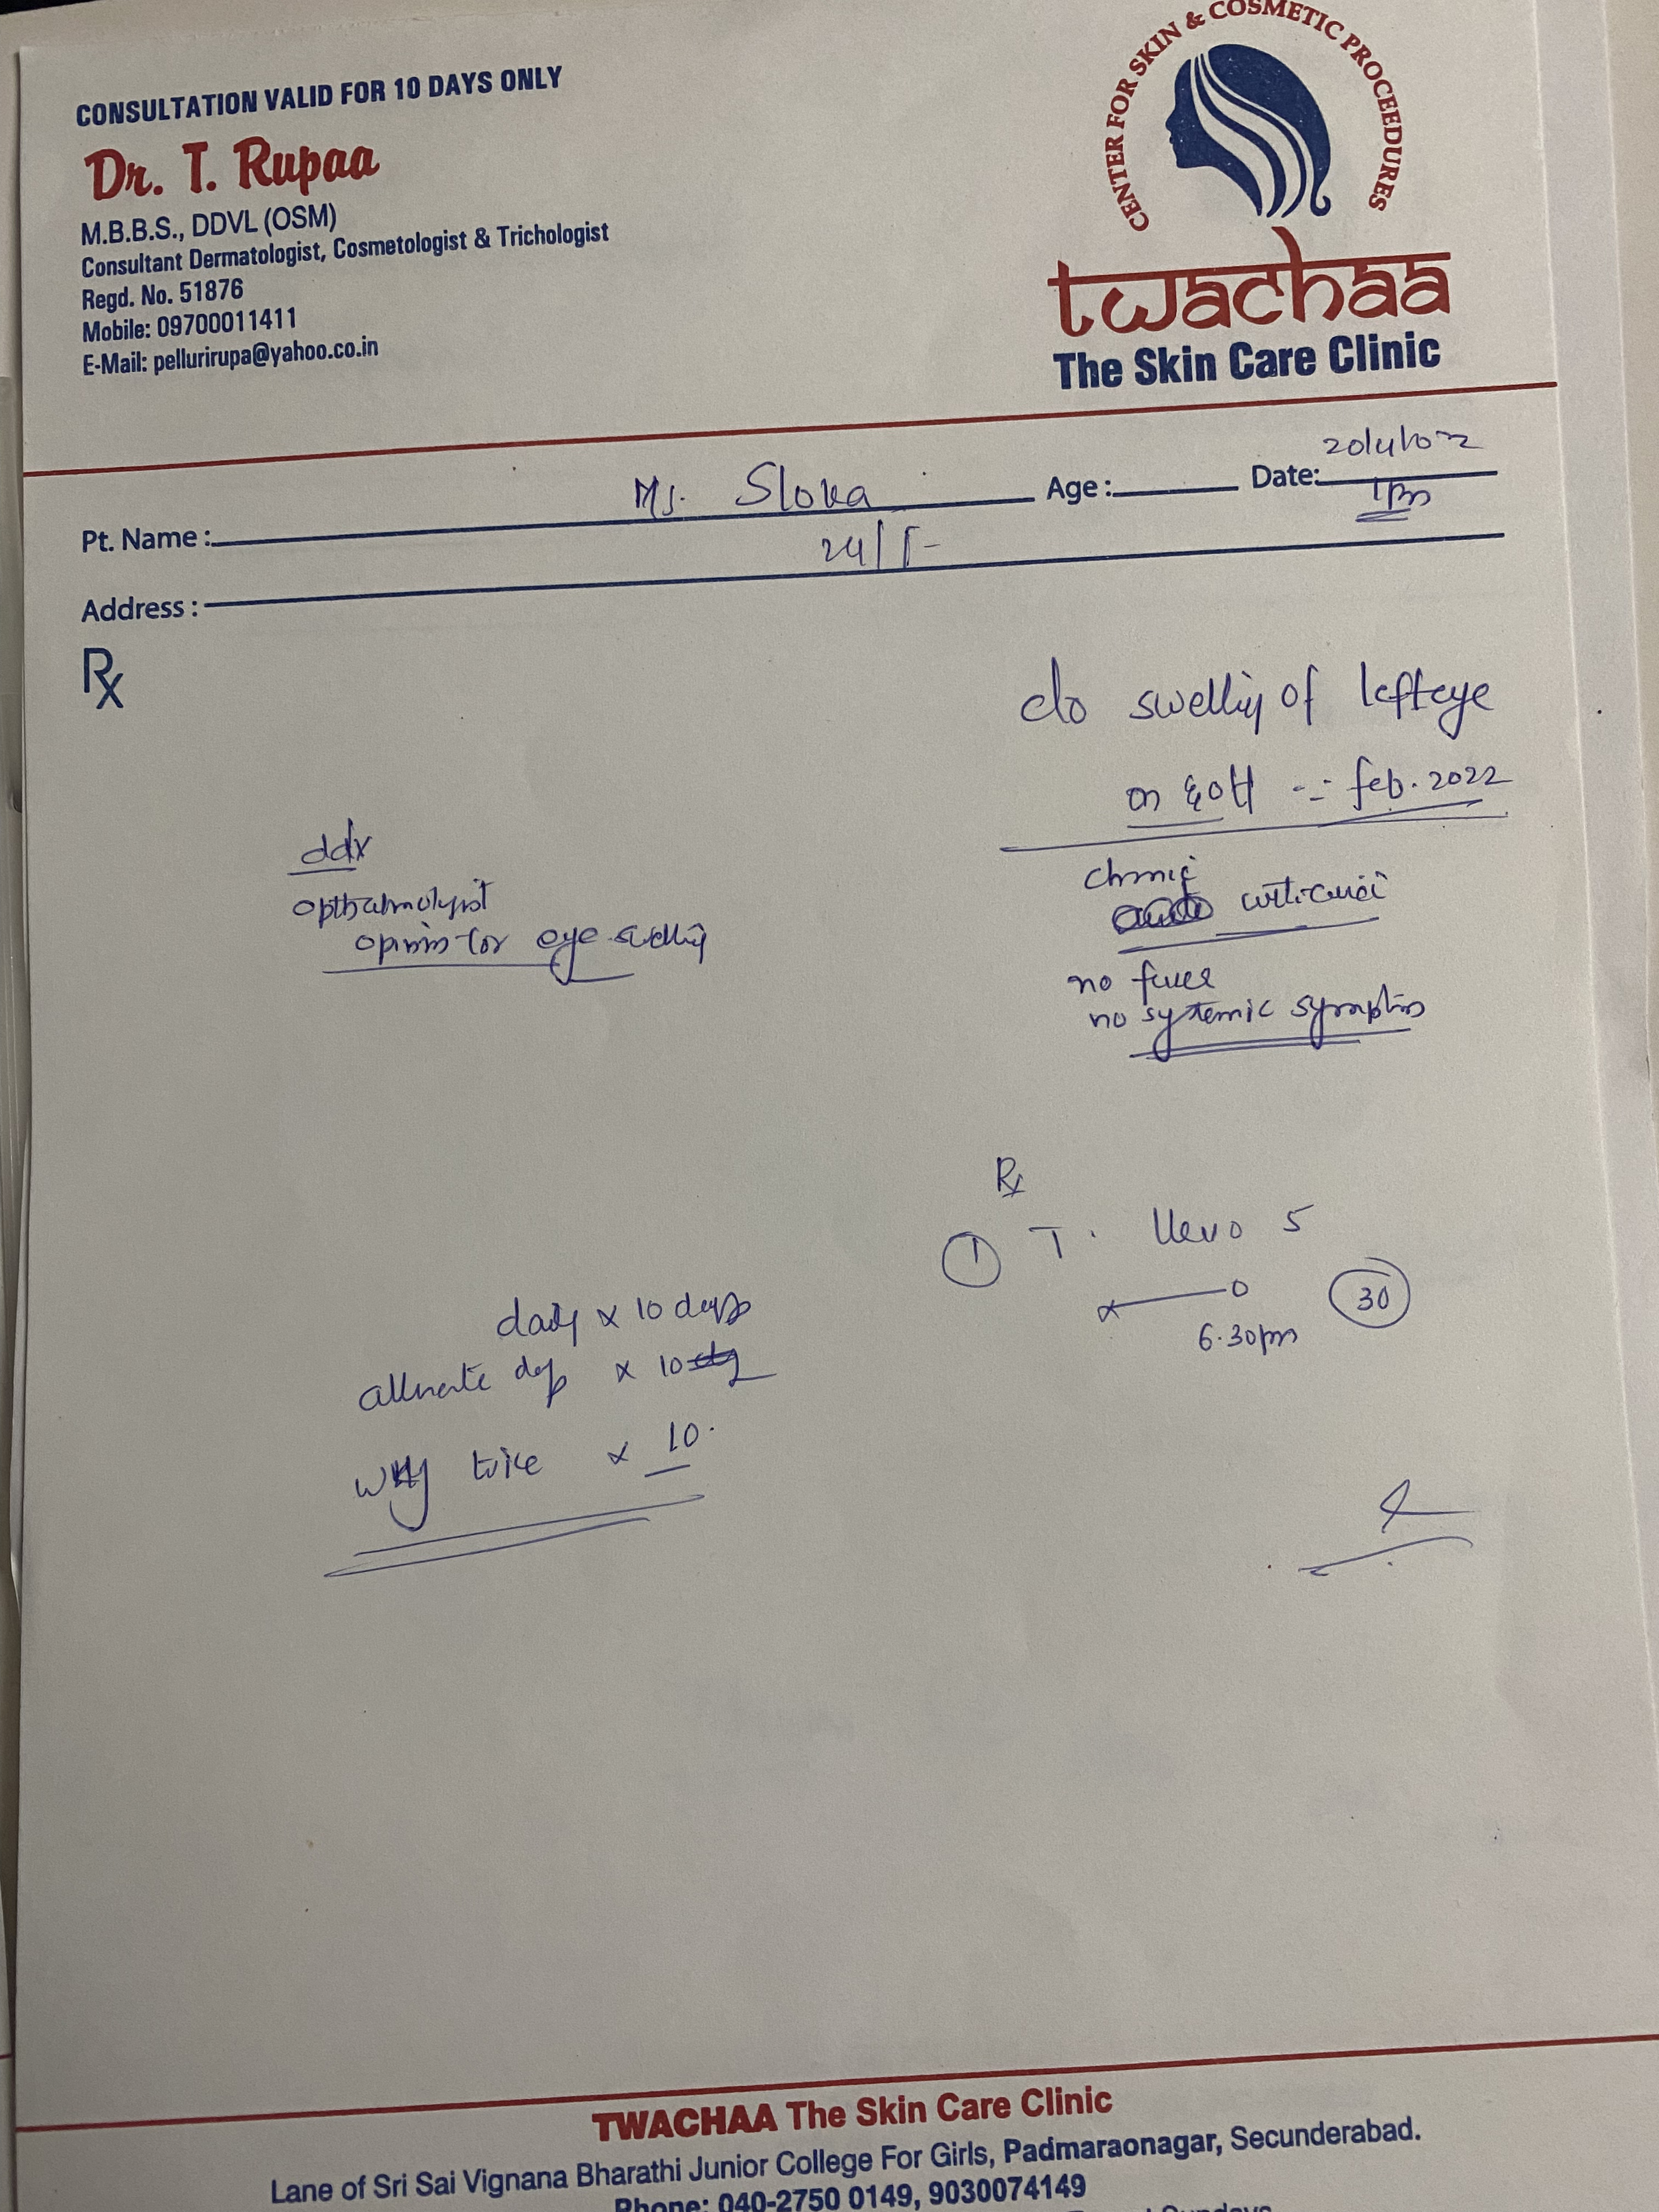 CONSULTATION VALID FOR 10 DAYS ONLY
Dr. T. Rupaa
M.B.B.S., DDVL (OSM)
Consultant Dermatologist, Cosmetologist & Trichologist
Regd. No. 51876
Mobile: 09700011411
E-Mail: pellurirupa@yahoo.co.in
CENTER FOR SKIN & COSMETIC PROCEEDURES
twachaa
The Skin Care Clinic
Pt. Name : Ms. Sloka Age : Date: 20/4/2022
1pm
Address : 24/F
Rx
c/o swelling of left eye
on & off -:- feb. 2022
chronic
urticaria
no fever
no systemic symptoms
adv
opthalmologist
opinion for eye swelling
Rx
1 T. Uevo 5
x—0 30
6.30pm
daily x 10 days
alternate day x 10
weekly twice x 10.
TWACHAA The Skin Care Clinic
Lane of Sri Sai Vignana Bharathi Junior College For Girls, Padmaraonagar, Secunderabad.
Phone: 040-2750 0149, 9030074149
Sundays